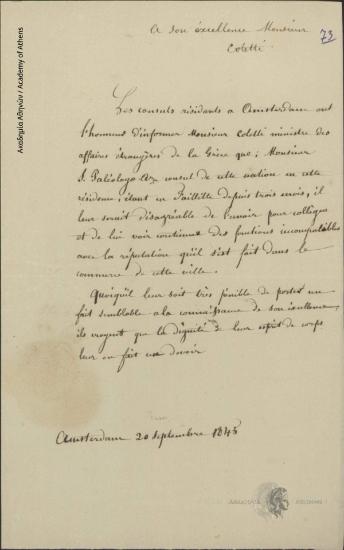 A son éxcellence Monsieur
Coletti
73
Les consuls résidents a Amsterdam ont
l'honneur d'informer Monsieur Coletti ministre des
affaires étrangères de la Grèce que; Monsieur
J. Paléologo Ex consul de cette nation en cette
résidence, étant en Faillitte depuis trois mois, il
leur serait disagréable de l'avoir pour collègue
et de lui voir continuer des fonctions incompatibles
avec la réputation qu'il s'est fait dans le
commerce de cette ville.
Quoiqu'il leur soit très pénible de porter un
fait semblable a la connaissance de son éxcellence,
ils croyent que la dignité & leur esprit de corps
leur en fait un devoir
Amsterdam 20 Septembre 1845
Ακαδημία Αθηνών / Academy of Athens
ΑΚΑΔΗΜΙΑ ΑΘΗΝΩΝ